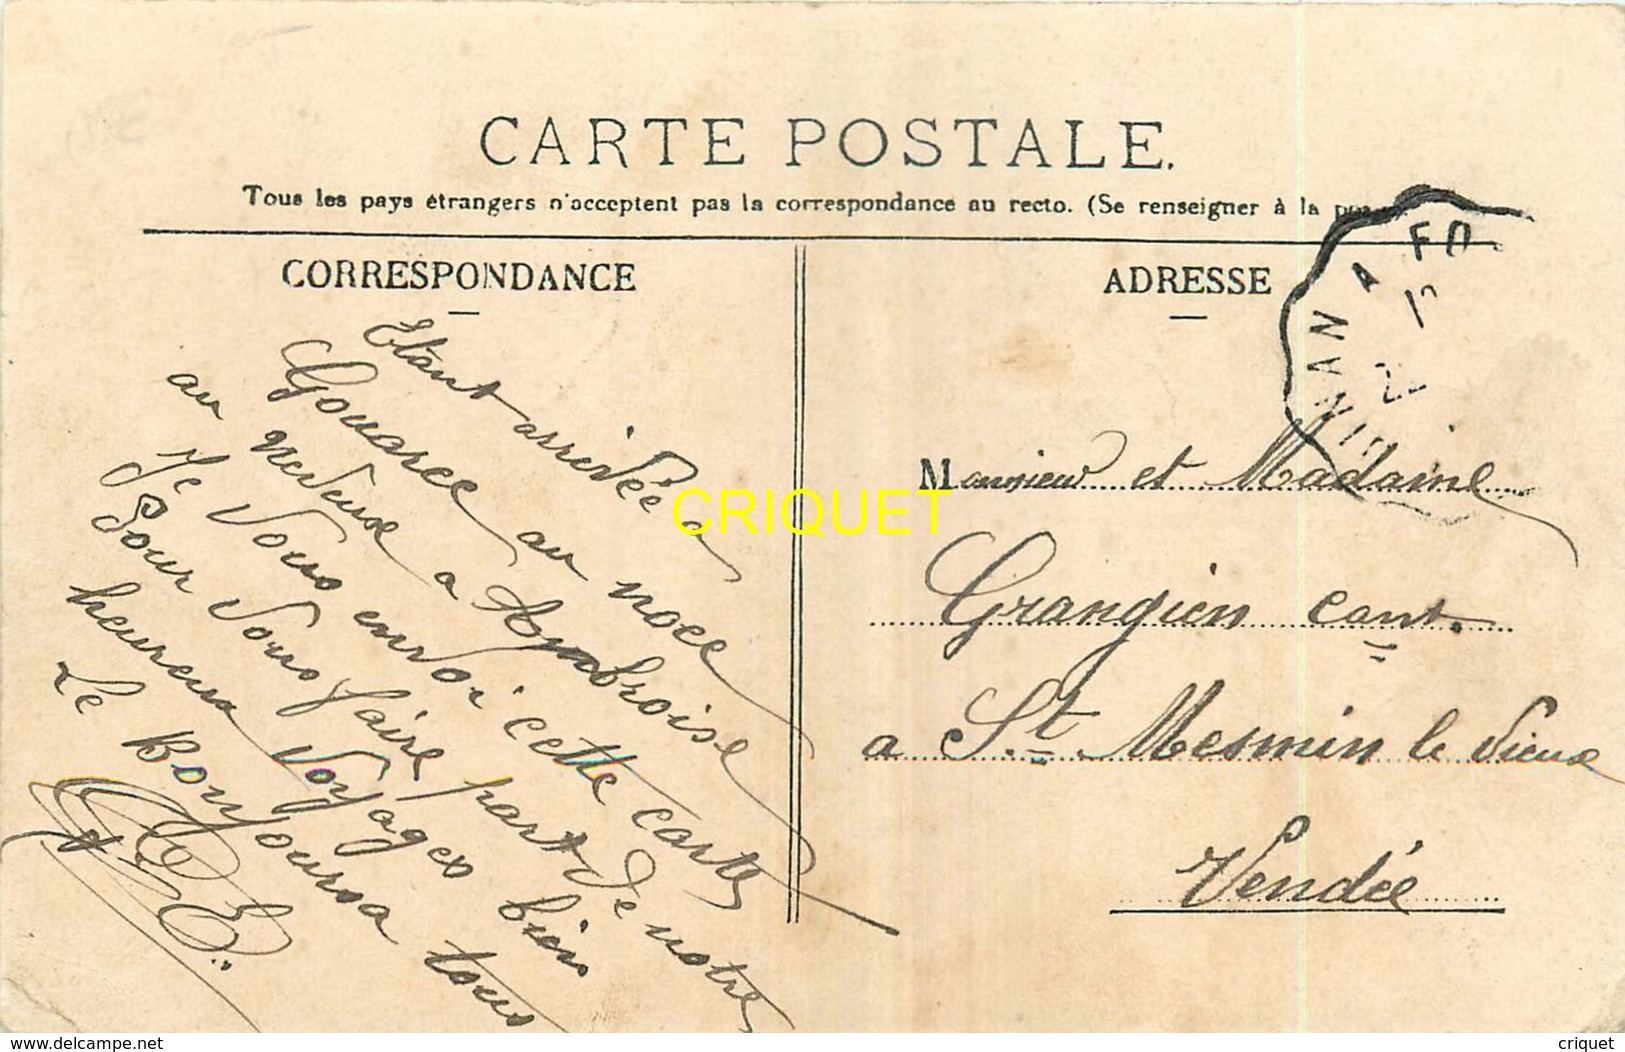 CARTE POSTALE.
Tous les pays étrangers n'acceptent pas la correspondance au recto. (Se renseigner à la poste).
CORRESPONDANCE
Etant arrivée a
Gouarec au noce
au neveux a Ambroise
Je vous envoi cette carte
Pour vous faire part de notre
heureux voyages bien
Le Bonjoursa tous
ADRESSE
Monsieur et Madame
Grangien cant.
a St. Mesmin le vieux
Vendée
NAN A
CRIQUET
www.delcampe.net
criquet